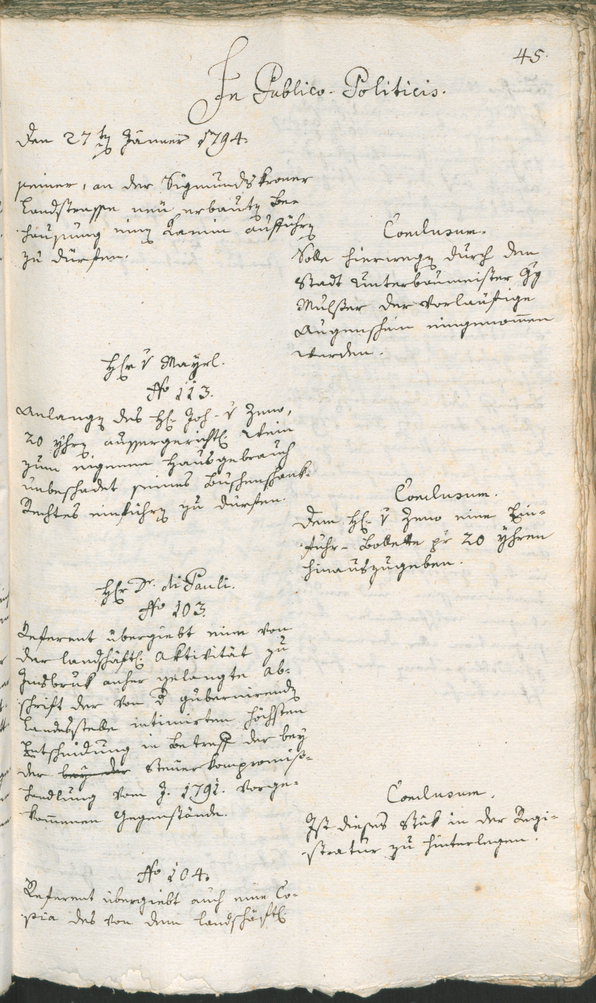 45.
In Publico-Politicis.
Den 27ten Jänner 1794.
seiner, an der Sigmundskroner
Landstrasse neu erbauten Be-
hausung einen Kamin aufführen
zu dürfen.
Conclusum.
Solle hierwegen durch den
Stadt Unterbaumeister
Mulser der vorläufige
Augenschein eingenommen
werden.
Hr. v Mayrl.
No 113.
Anlangen des H. Joh. v Zeno,
20 Yhrn aussergerichtl. Wein
zum eigenen Hausgebrauch
unbeschadet seines Buschenschank-
Rechtes einführen zu dürfen.
Conclusum.
Dem H. v Zeno eine Ein-
fuhr-Bollette pr 20 Yhren
hinauszugeben.
Hr Dr. di Pauli.
No 103.
Referent übergiebt eine von
der landschäftl. Aktivität zu
Innsbruk anher gelangte Ab-
schrift der von gubernirenden
Landesstelle intimirten höchsten
Entscheidung in Betreff der bey
der bey der Steuerkompromiss-
handlung vom J. 1791. vorge-
kommenen Gegenstände.
Conclusum.
Ist dieses Stük in der Regi-
stratur zu hinterlegen.
No 104.
Referent übergiebt auch eine Co-
pia des von dem landschäftl.